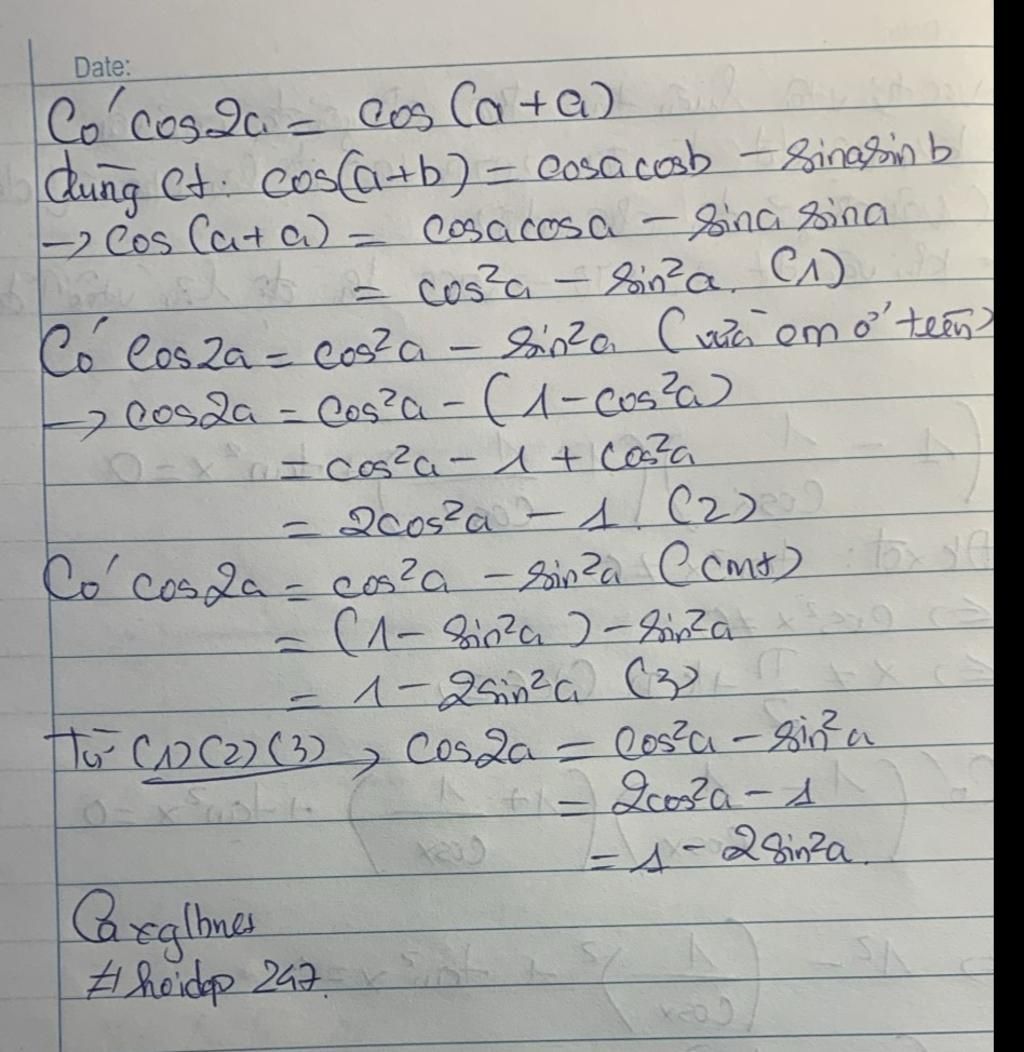 Date:
Có cos2a = cos(a+a)
dùng ct: cos(a+b) = cosacosb - sinasinb
→ cos(a+a) = cosacosa - sina sina
= cos²a - sin²a. (1)
Có cos2a = cos²a - sin²a (vừa cm ở trên)
→ cos2a = cos²a - (1-cos²a)
= cos²a - 1 + cos²a
= 2cos²a - 1. (2)
Có cos2a = cos²a - sin²a (cmt)
= (1 - sin²a) - sin²a
= 1 - 2sin²a (3)
Từ (1)(2)(3) → cos2a = cos²a - sin²a
= 2cos²a - 1
= 1 - 2sin²a.
#hoidap 247.